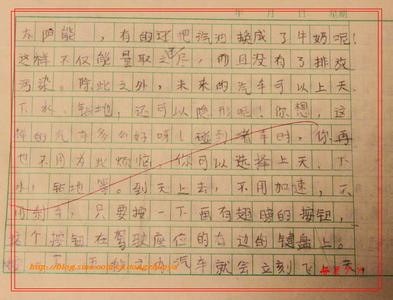 年 月 日 星期
太阳能,有的还把汽油换成了牛奶呢!
这样不仅能量取之不尽,而且没有了排放
污染。除此之外,未来的汽车可以上天、
下水、钻地,还可以隐形呢!你想,这
样的汽车多么好呀!碰到堵车时,你再
也不用为此烦恼。你可以选择上天、下
水、钻地等。到天上去,不用加速,不
用刹车,只要按一下画有翅膀的按钮,
这个按钮在驾驶座位的右边的键盘上。
汽车就会立刻飞